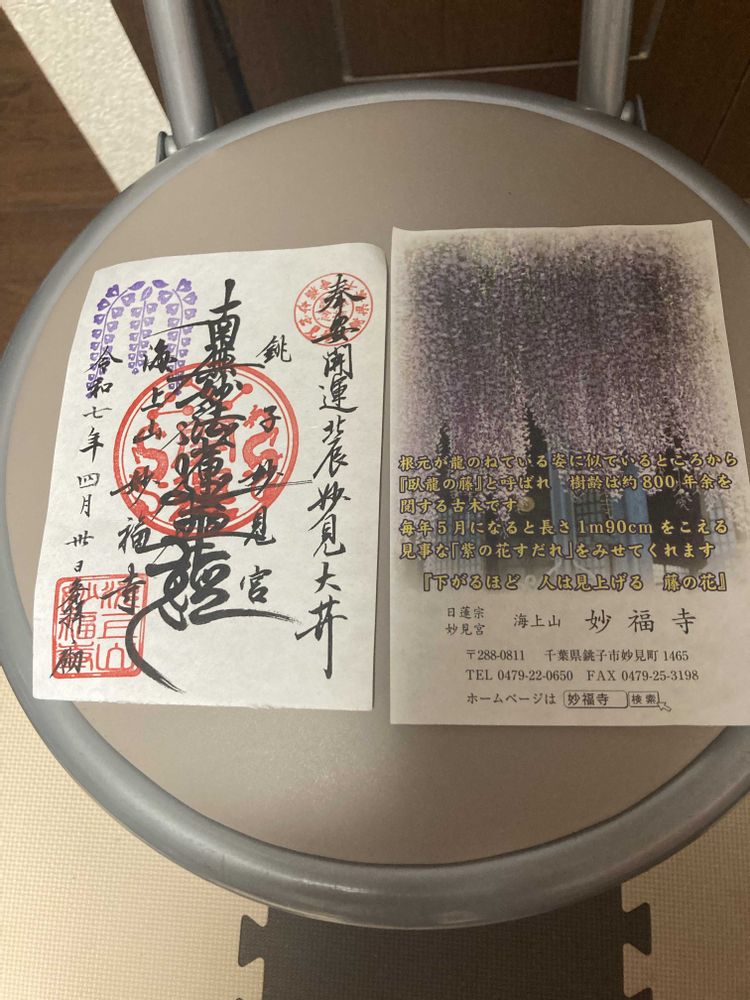 奉安開運北辰妙見大菩薩
銚子妙見宮
南無妙法蓮華経
海上山妙福寺
令和七年四月卅日
根元が龍のねている姿に似ているところから
『臥龍の藤』と呼ばれ 樹齢は約800年余を
関する古木です
毎年5月になると長さ1m90cmをこえる
見事な「紫の花すだれ」をみせてくれます
『下がるほど 人は見上げる 藤の花』
日蓮宗
妙見宮
海上山 妙福寺
〒288-0811 千葉県銚子市妙見町1465
TEL 0479-22-0650 FAX 0479-25-3198
ホームページは 妙福寺 検索